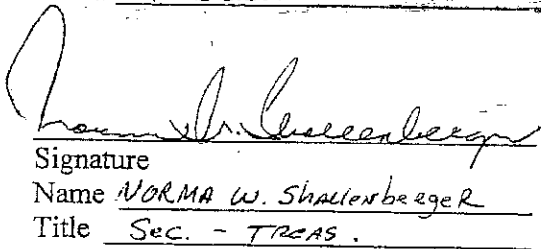 Norma W. Shallenberger
Signature
Name NORMA W. ShallenbeRgeR
Title Sec. - TREAS.